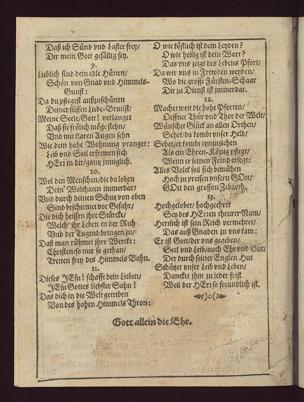 Daß ich Sünd und Laster frey/
Dir mein Gott gefällig sey.
9.
Lieblich sind dein edle Hütten/
Schön von Gnad und Himmels-
Gunst:
Da du pflegest außzuschütten
Deiner süssen Liebe-Brunst/
Meine Seele/Gott! verlanget
Daß sie frölich möge stehn/
Und mit klaren Augen sehn
Wie dein hohe Wohnung pranget:
Leib und Seel erfreuen sich
HErr in dir/gantz inniglich.
10.
Wol den Menschen/die da loben
Deine Wolthaten immerdar/
Und durch deinen Schutz von oben
Sind beschirmet vor Gefahr/
Die dich heissen ihre Stärcke/
Weil ihr Leben in der Ruh
Und der Tugend bringen zu/
Daß man rühmet ihre Wercke:
Christen/so nur so gethan/
Treten frey des Himmels Bahn.
11.
Dieses JEsu! schafft dein Lieben/
JEsu Gottes liebster Sohn!
Das dich in die Welt getrieben
Von des hohen Himmels Thron:
O wie tröstlich ist dein Leyden?
O wie heilig ist dein Wort?
Das uns zeigt des Lebens Pfort/
Da wir uns in Freuden weyden/
Wo die grosse Fürsten-Schaar
Dir zu Dienst ist immerdar.
12.
Machet weit die hohe Pforten/
Oeffnet Thür und Thor der Welt/
Wünschet Glück an allen Orthen/
Sehet da komt unser Held/
Sehet/er komt einzuziehen
Als ein Ehren-König pflegt/
Wenn er seinen Feind erlegt:
Alles Volck soll sich bemühen
Hoch zu preisen unsern GOtt/
GOtt den grossen Zebaoth.
13.
Hochgelobet/ hochgeehret
Sey des HErren theurer Nam/
Herrlich ist sein Reich vermehret/
Das auß Gnaden zu uns kam:
Er ist Gott/der uns gegeben/
Seel und Leib/auch Ehr und Gut/
Der durch seiner Englen Hut
Schützet unser Leib und Leben/
Dancket ihm zu jeder frist
Weil der HErr so freundlich ist.
Gott allein die Ehr.